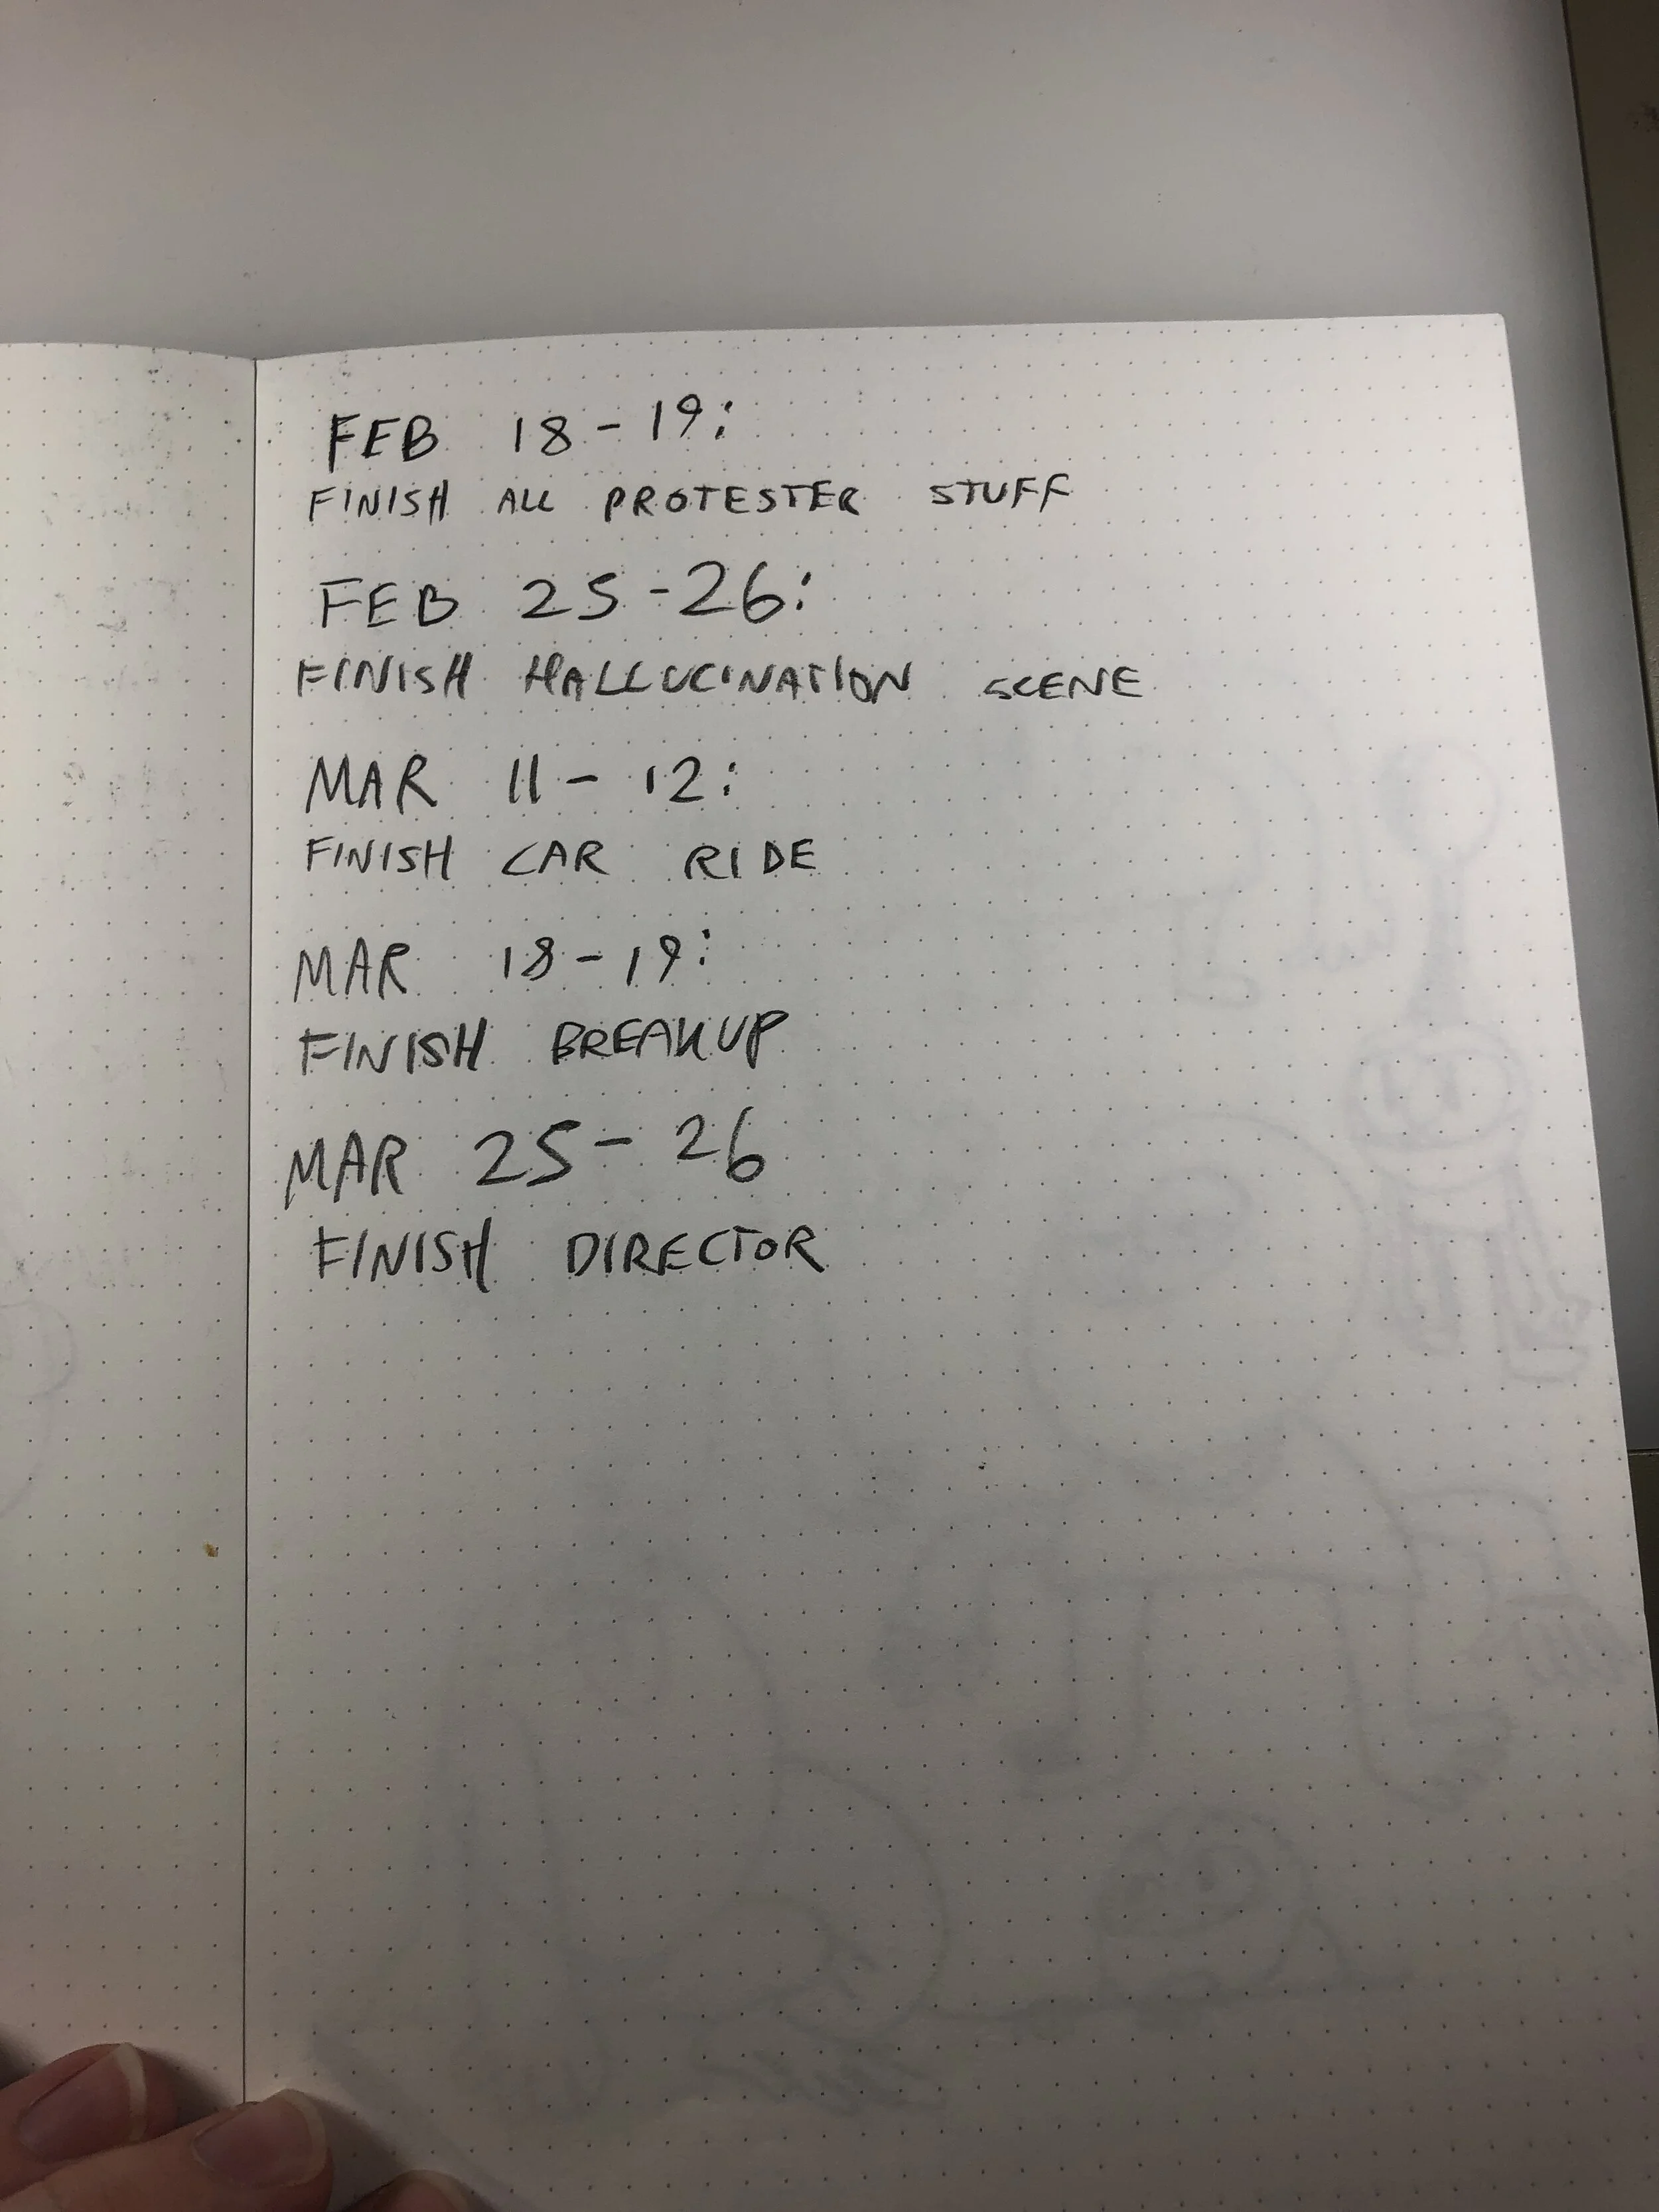 FEB 18-19:
FINISH ALL PROTESTER STUFF
FEB 25-26:
FINISH HALLUCINATION SCENE
MAR 11-12:
FINISH CAR RIDE
MAR 18-19:
FINISH BREAKUP
MAR 25-26
FINISH DIRECTOR